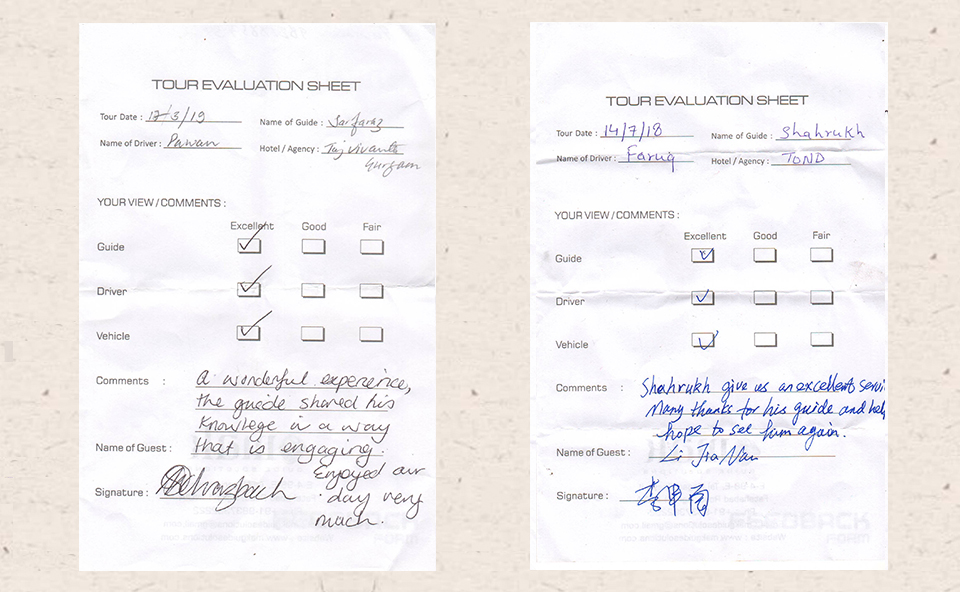 TOUR EVALUATION SHEET
Tour Date : 17-3/19
Name of Guide : Sarfaraz
Name of Driver : Pawan
Hotel / Agency : Taj Vivanta
Gurgaon
YOUR VIEW / COMMENTS :
Excellent Good Fair
Guide
Driver
Vehicle
Comments : A wonderful experience,
the guide shared his
Knowlege in a way
Name of Guest : that is engaging.
Enjoyed our
Signature :
day very
much.
TOUR EVALUATION SHEET
Tour Date : 14/7/18
Name of Guide : Shahrukh
Name of Driver : Faruq
Hotel / Agency : TOND
YOUR VIEW / COMMENTS :
Excellent Good Fair
Guide
Driver
Vehicle
Comments : Shahrukh give us an excellent servi
Many thanks for his guide and help
hope to see him again.
Name of Guest : Li Jia Nan
Signature : 李甲南
FEEDBACK
FORM